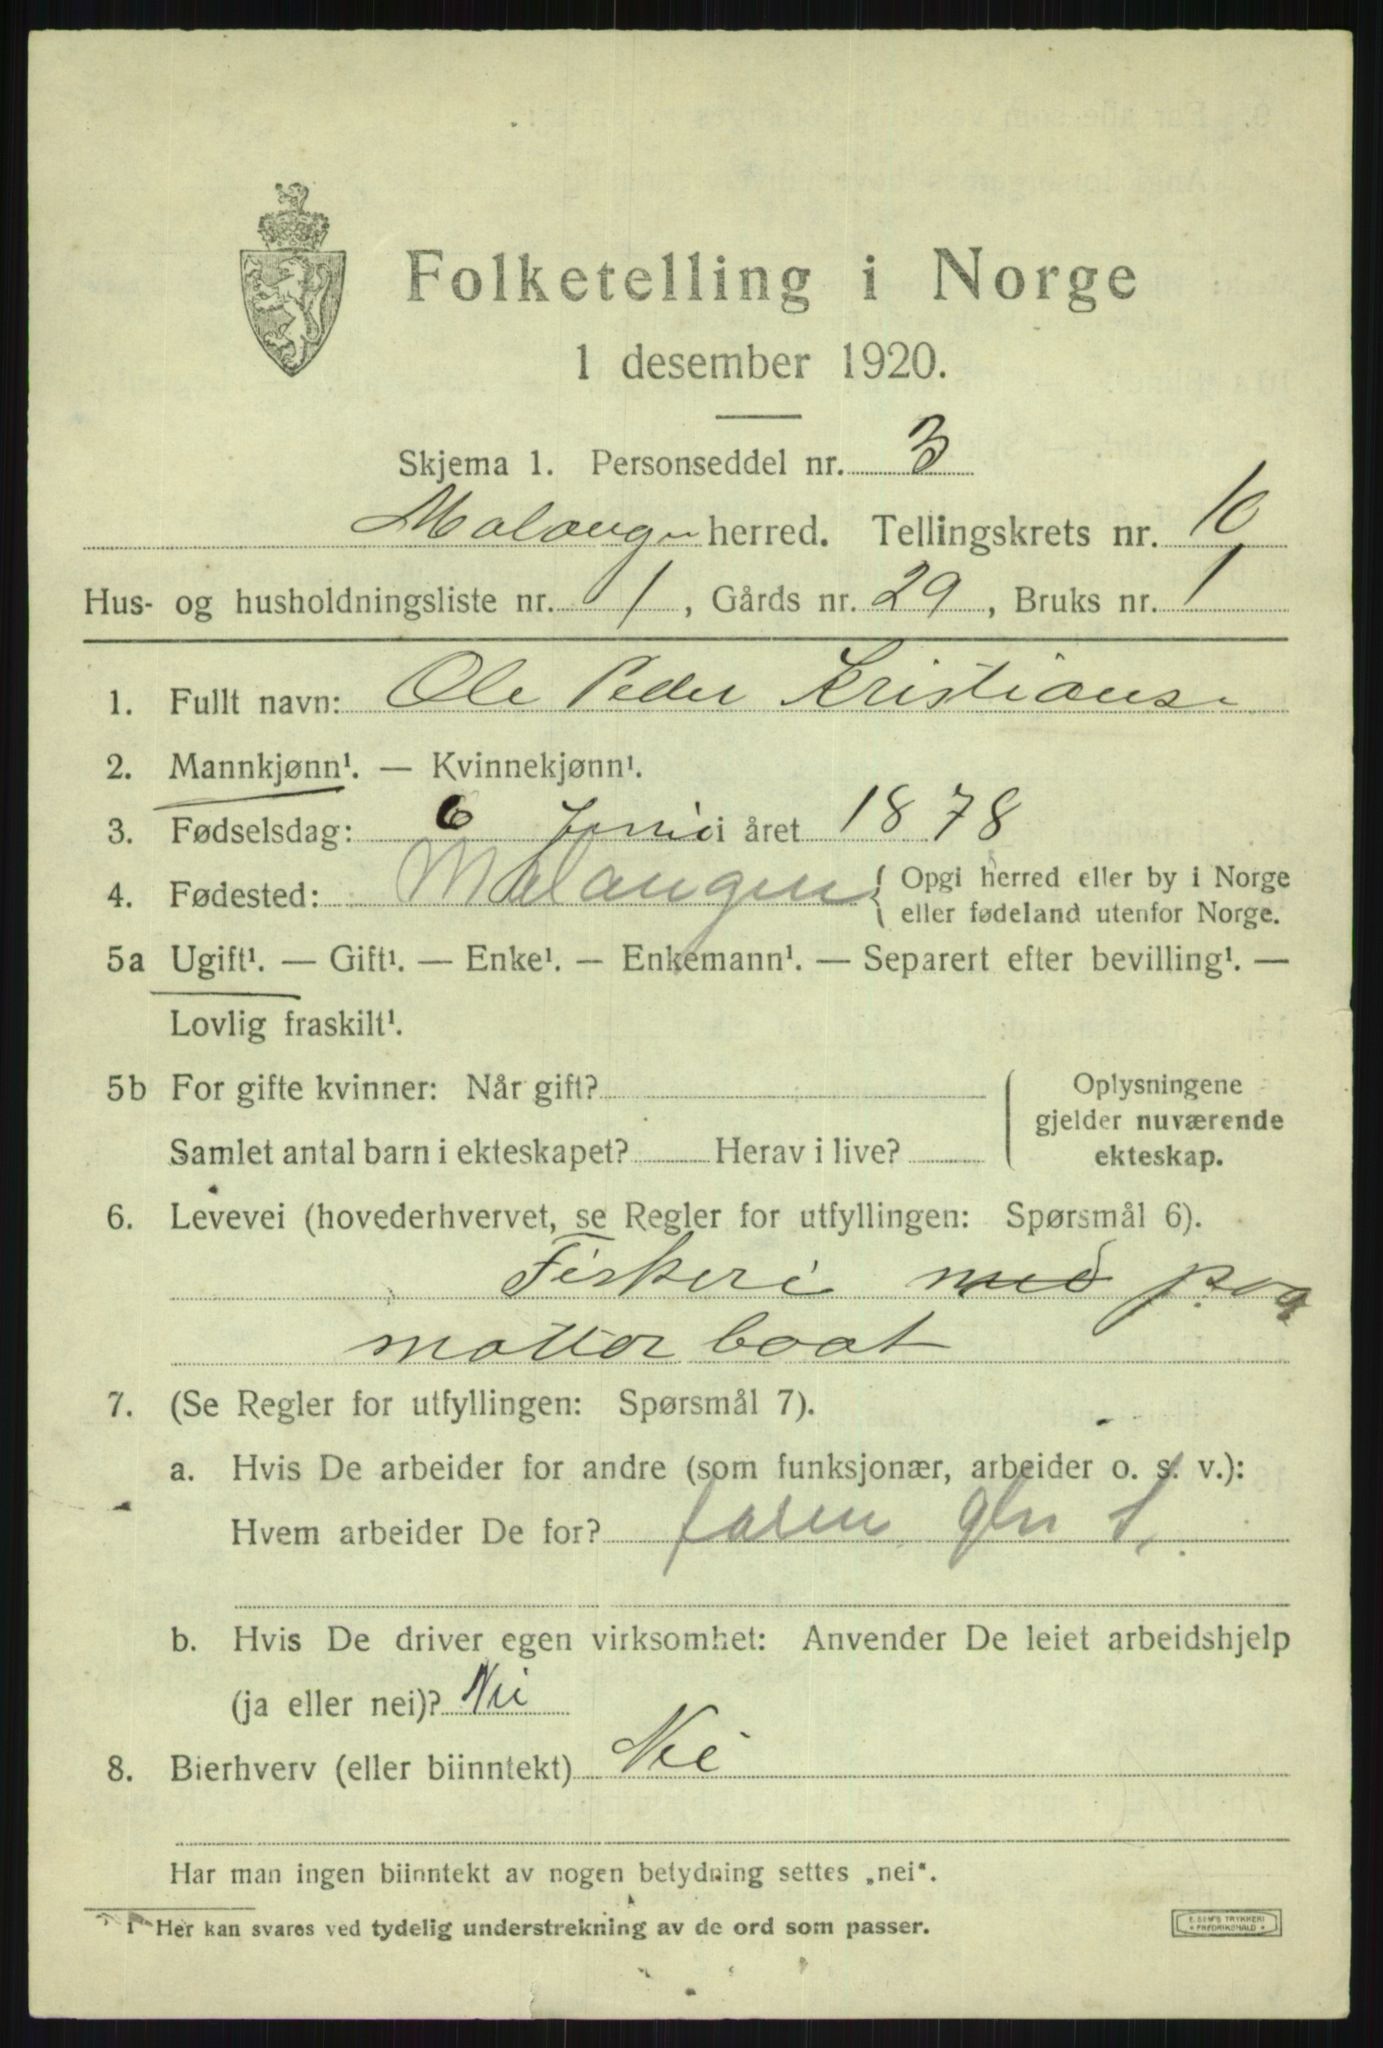 Folketelling i Norge
1 desember 1920.
Skjema 1. Personseddel nr. 3
Malangen herred. Tellingskrets nr. 10
Hus- og husholdningsliste nr. 1, Gårds nr. 29, Bruks nr. 1
1. Fullt navn: Ole Peder Kristianse
2. Mannkjønn¹. — Kvinnekjønn¹.
3. Fødselsdag: 6 i året 1878
4. Fødested: Malangen { Opgi herred eller by i Norge
eller fødeland utenfor Norge.
5a Ugift¹. — Gift¹. — Enke¹. — Enkemann¹. — Separert efter bevilling¹. —
Lovlig fraskilt¹.
5b For gifte kvinner: Når gift? Oplysningene
gjelder nuværende
Samlet antal barn i ekteskapet? Herav i live? ekteskap.
6. Levevei (hovederhvervet, se Regler for utfyllingen: Spørsmål 6).
Fiskeri med paa
mottor baat
7. (Se Regler for utfyllingen: Spørsmål 7).
a. Hvis De arbeider for andre (som funksjonær, arbeider o. s. v.):
Hvem arbeider De for? faren
b. Hvis De driver egen virksomhet: Anvender De leiet arbeidshjelp
(ja eller nei)? Nei
8. Bierhverv (eller biinntekt) Nei
Har man ingen biinntekt av nogen betydning settes „nei".
1 Her kan svares ved tydelig understrekning av de ord som passer.
E. SEM'S TRYKKERI
FREDRIKSHALD